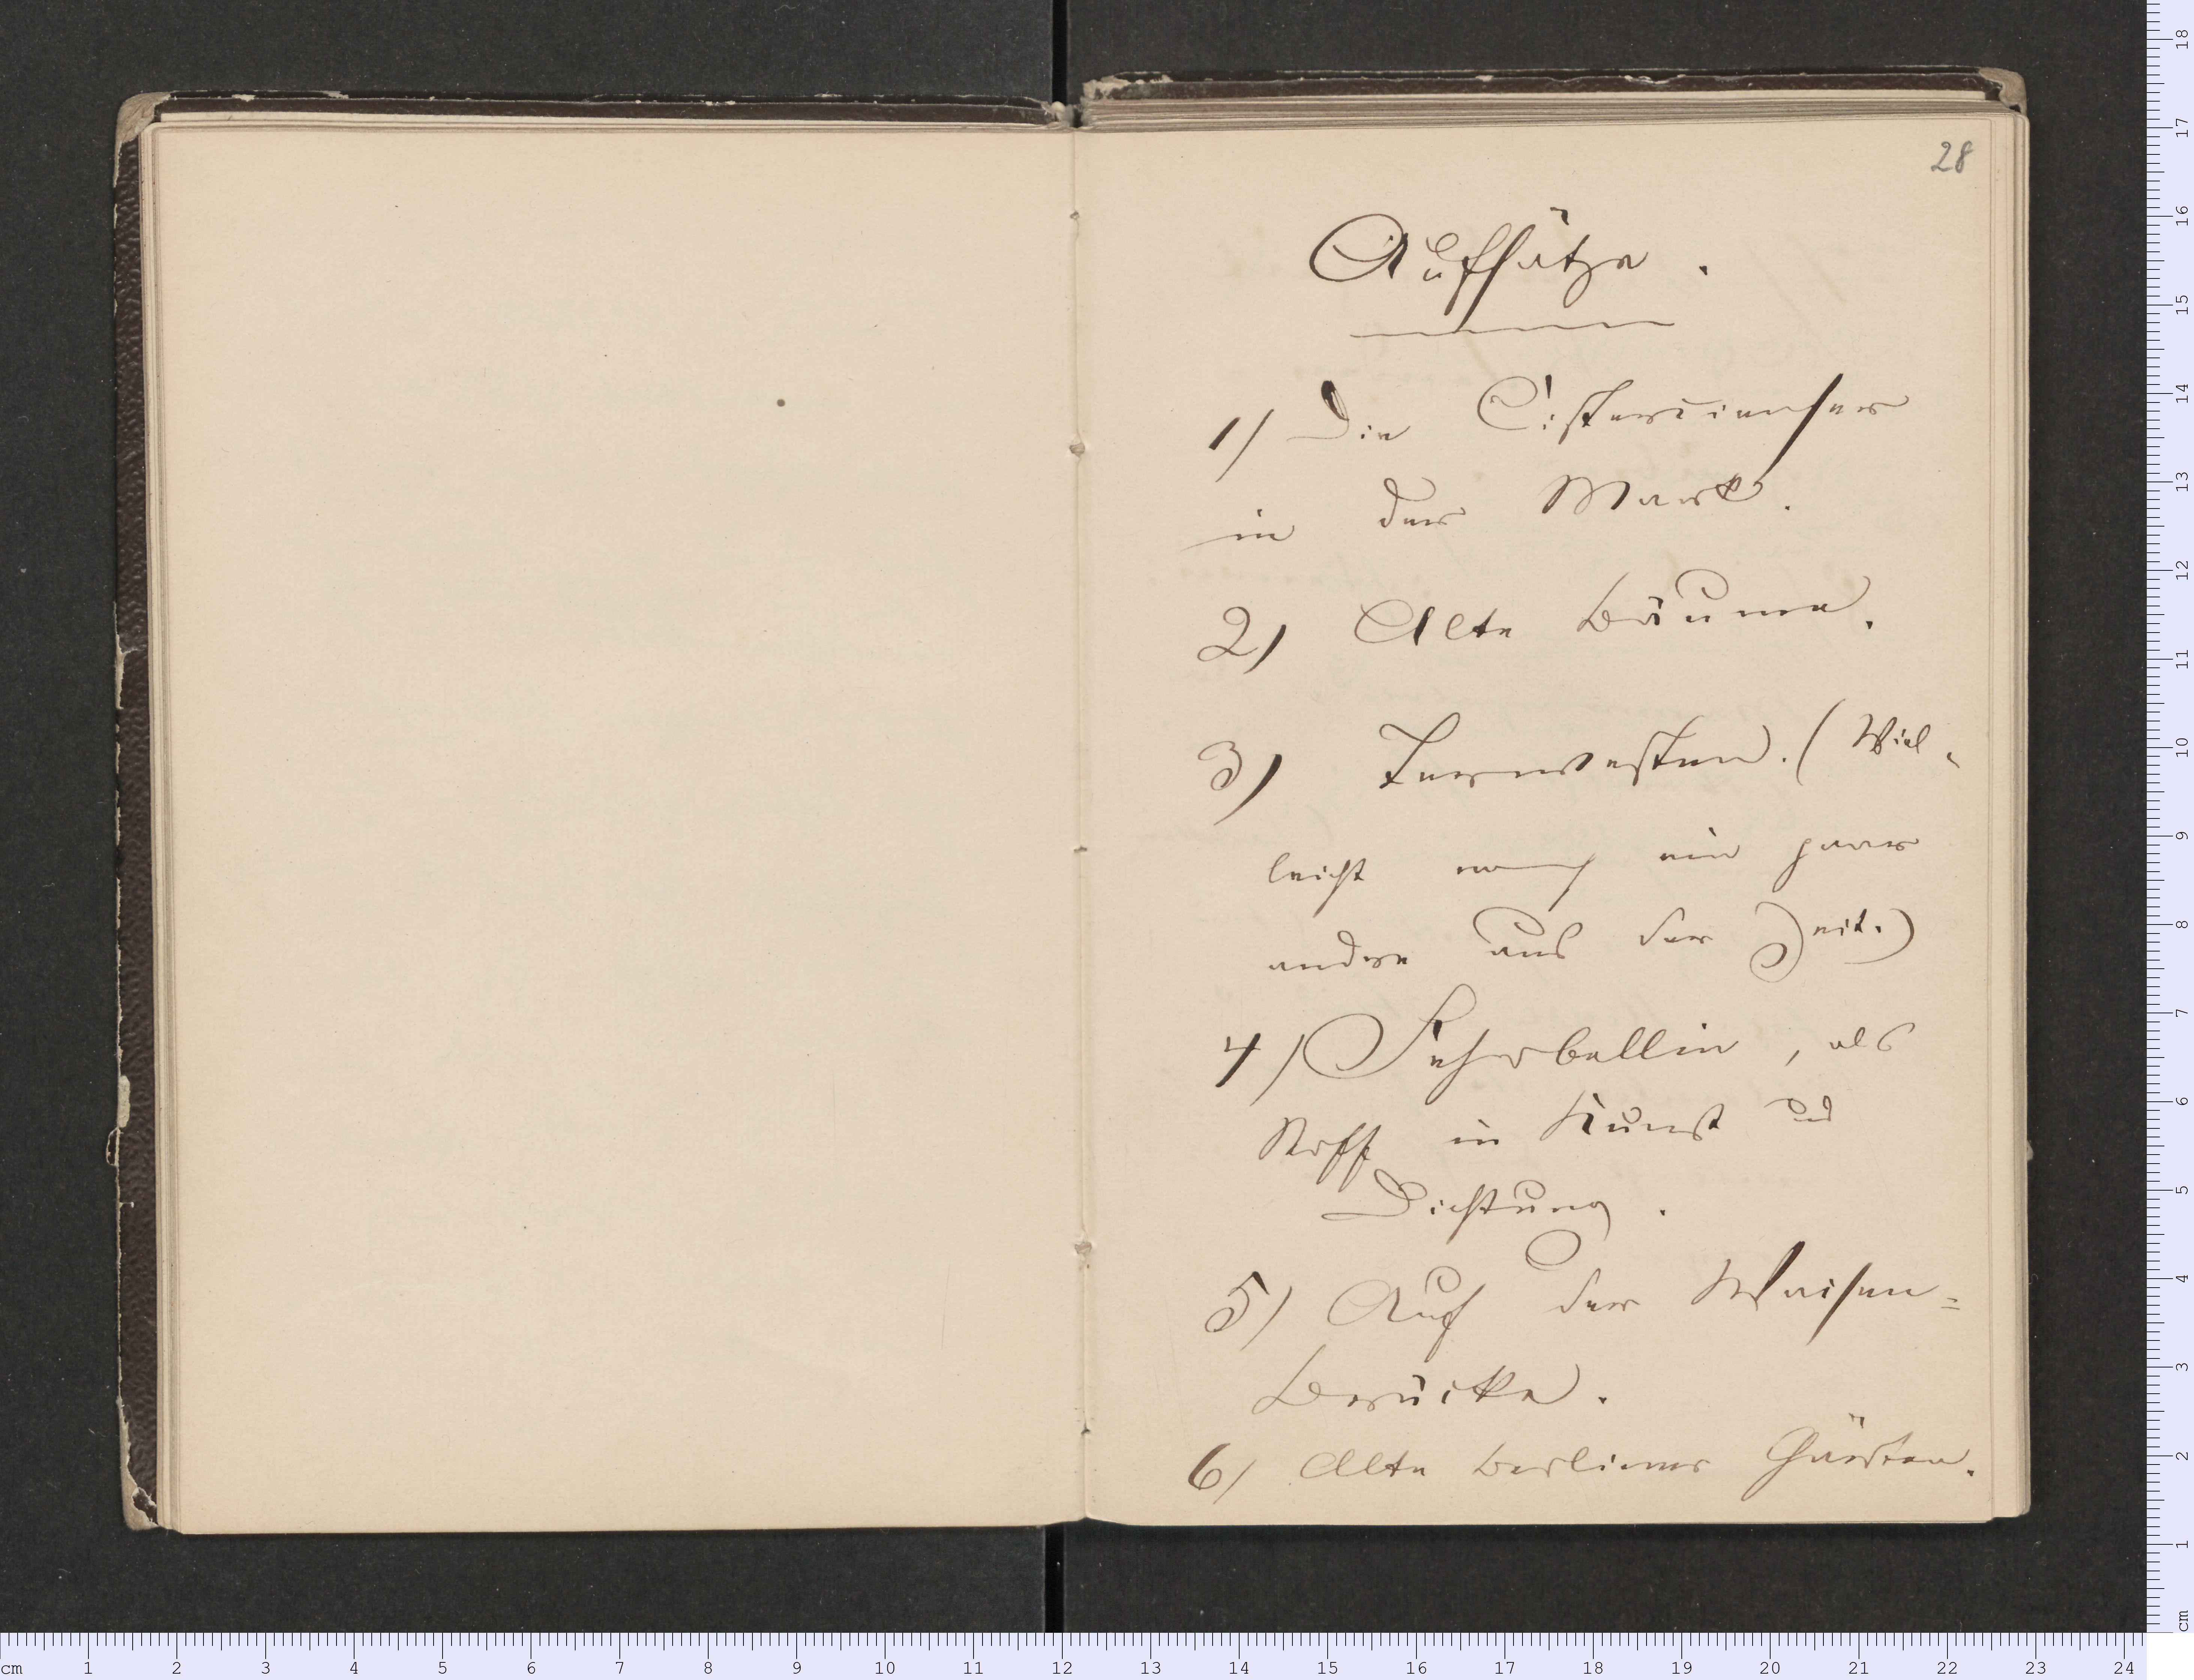 28
Aufsätze.
1) Die Cistercienser
in der Mark.
2) Alte Bäume.
3) Terwesten. (Viel-
leicht noch ein paar
andre aus der Zeit.)
4) Fehrbellin, als
Stoff in Kunst und
Dichtung.
5) Auf der Waisen=
Brücke.
6) Alte Berliner Gärten.
18
17
16
15
14
13
12
11
10
9
8
7
6
5
4
3
2
1
cm
cm 1 2 3 4 5 6 7 8 9 10 11 12 13 14 15 16 17 18 19 20 21 22 23 24